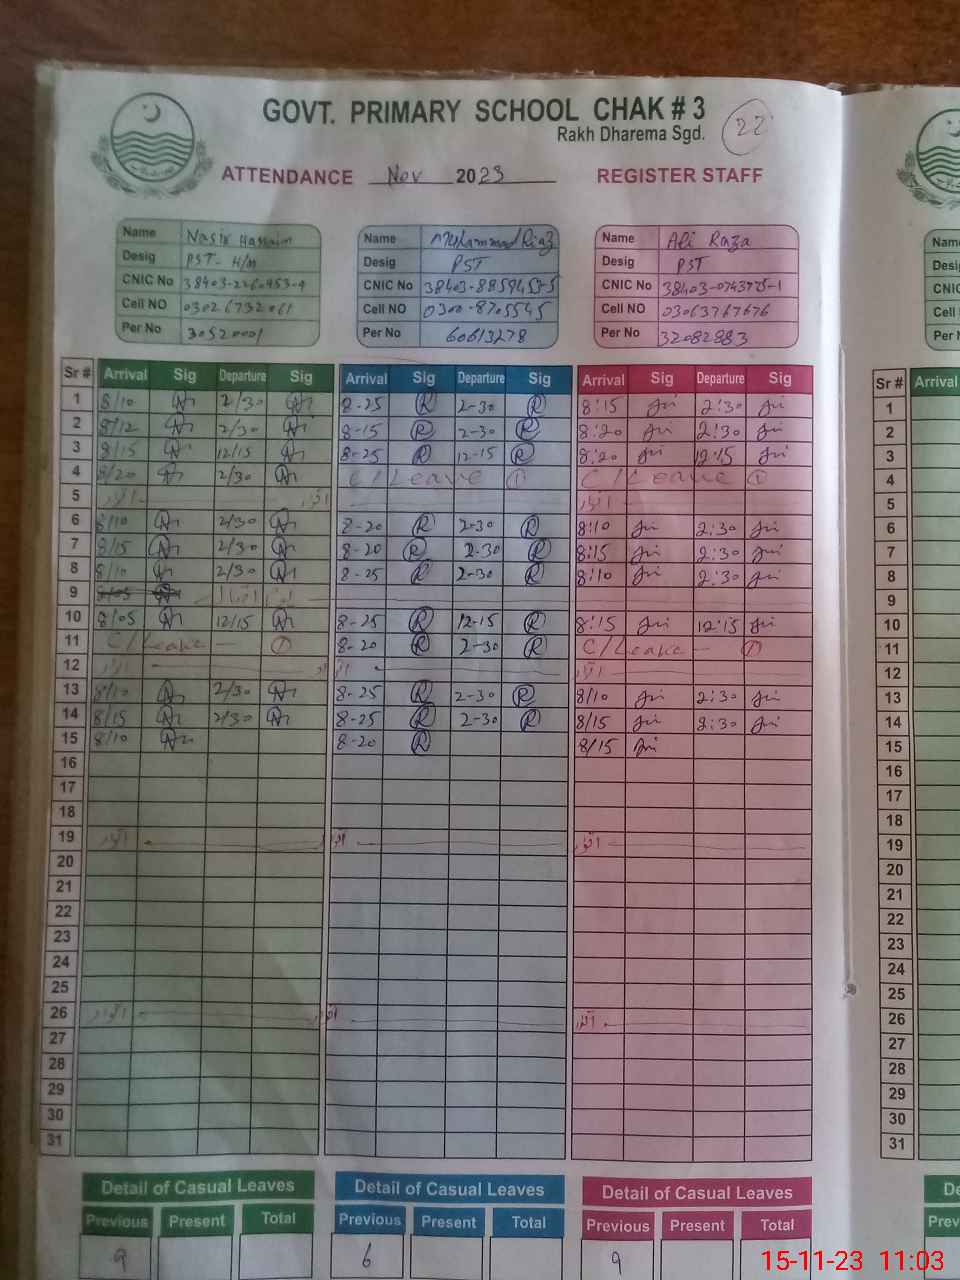 GOVT. PRIMARY SCHOOL CHAK # 3
Rakh Dharema Sgd.
22
ATTENDANCE Nov 2023 REGISTER STAFF
Name Nasir Hassain Name Muhammad Riaz Name Ali Raza
Desig PST - H/m Desig PST Desig PST
CNIC No CNIC No CNIC No
Cell NO 03026732061 Cell NO 0300-8705545 Cell NO 03063767676
Per No 30520001 Per No 60613278 Per No 32082883
Sr # Arrival Sig Departure Sig Arrival Sig Departure Sig Arrival Sig Departure Sig Sr # Arrival
1 8/10 2/30 8-25 R 2-30 R 8:15 2:30 1
2 8/12 2/30 8-15 R 2-30 R 8:20 2:30 2
3 8/15 12/15 8-25 R 12-15 R 8:20 12:15 3
4 8/20 2/30 C/Leave 1 C/Leave 1 4
5 اتوار اتوار اتوار 5
6 8/10 2/30 8-20 R 2-30 R 8:10 2:30 6
7 8/15 2/30 8-20 R 2-30 R 8:15 2:30 7
8 8/10 2/30 8-25 R 2-30 R 8:10 2:30 8
9 8/05 9
10 8/05 12/15 8-25 R 12-15 R 8:15 12:15 10
11 C/Leave 1 8-20 R 2-30 R C/Leave 1 11
12 اتوار اتوار اتوار 12
13 8/10 2/30 8-25 R 2-30 R 8/10 2:30 13
14 8/15 2/30 8-25 R 2-30 R 8/15 2:30 14
15 8/10 8-20 R 8/15 15
16 16
17 17
18 18
19 اتوار اتوار اتوار 19
20 20
21 21
22 22
23 23
24 24
25 25
26 اتوار اتوار اتوار 26
27 27
28 28
29 29
30 30
31 31
Detail of Casual Leaves Detail of Casual Leaves Detail of Casual Leaves
Previous Present Total Previous Present Total Previous Present Total
9 6 9
15-11-23 11:03